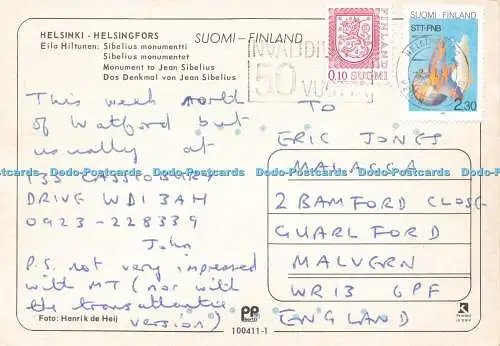 HELSINKI - HELSINGFORS
Eila Hiltunen: Sibelius monumentti
Sibelius monumentet
Monument to Jean Sibelius
Das Denkmal von Jean Sibelius
SUOMI - FINLAND
INVALIDI
50
VUOTTA
FINLAND
0.10 SUOMI
SUOMI-FINLAND
STT-FNB
2,30
This week north
of Watford but
usually at
133 CASSIOBURY
DRIVE WD1 3AH
0923-228339
John
P.S. not very impressed
with MT (nor with
the transatlantic
version)
TO
ERIC JONES
MALAGGA
2 BAMFORD CLOSE
GUARLFORD
MALVERN
WR13 6PF
ENGLAND
Foto: Henrik de Heij
PP
100411-1
Postcards